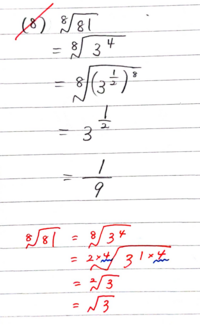 (8) ⁸√81
= ⁸√3⁴
= ⁸√(3^½)⁸
= 3^½
= 1/9
⁸√81 = ⁸√3⁴
= ²ˣ⁴√3¹ˣ⁴
= ²√3
= √3